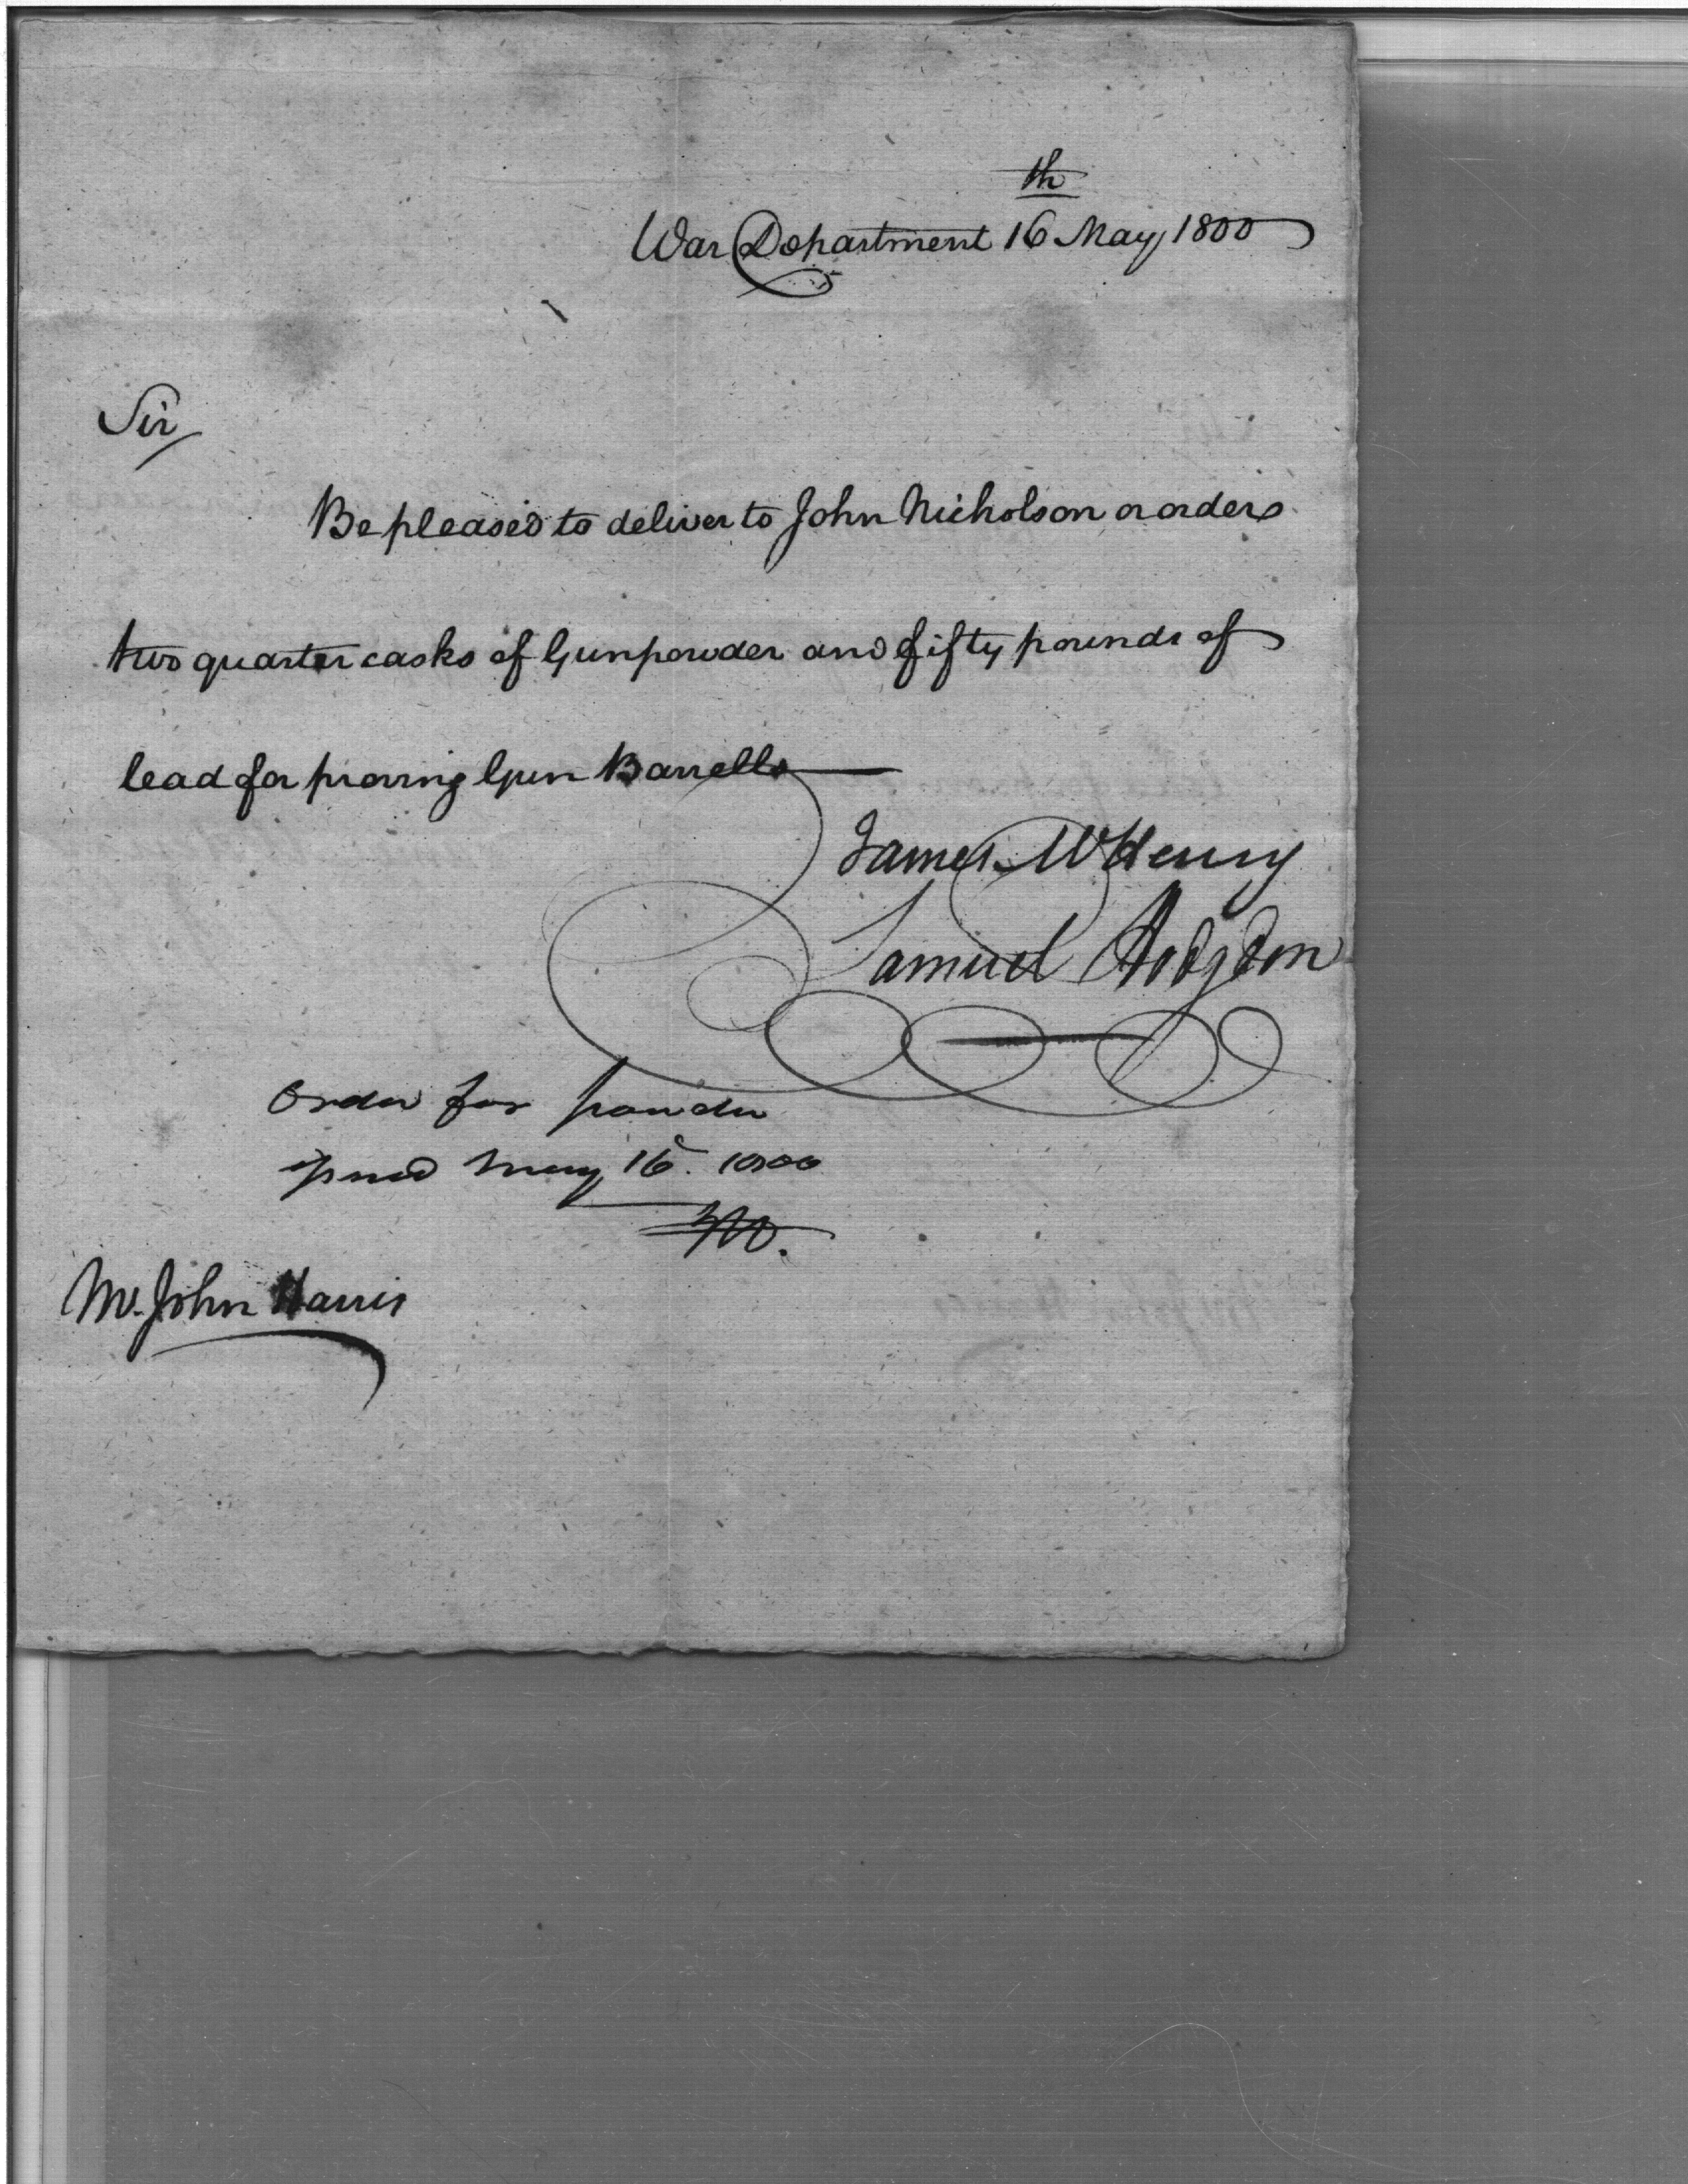 th
War Department 16 May 1800
Sir
Be pleased to deliver to John Nicholson or order
two quarter casks of Gunpowder and fifty pounds of
lead for proving Gun Barrells
James McHenry
Samuel Hodgdon
Order for powder
May 16. 1800
Mr. John Harris